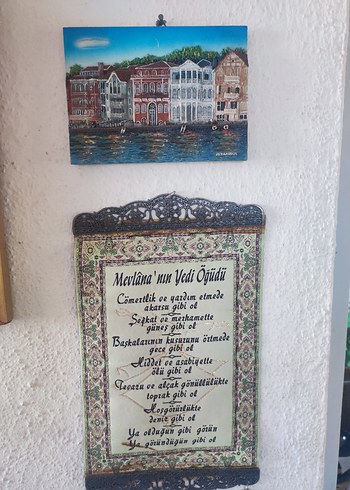 Mevlâna'nın Yedi Öğüdü
Cömertlik ve yardım etmede
akarsu gibi ol
Şefkat ve merhamette
güneş gibi ol
Başkalarının kusurunu örtmede
gece gibi ol
Hiddet ve asabiyette
ölü gibi ol
Tevazu ve alçak gönüllülükte
toprak gibi ol
Hoşgörürlükte
deniz gibi ol
Ya olduğun gibi görün
Ya göründüğün gibi ol